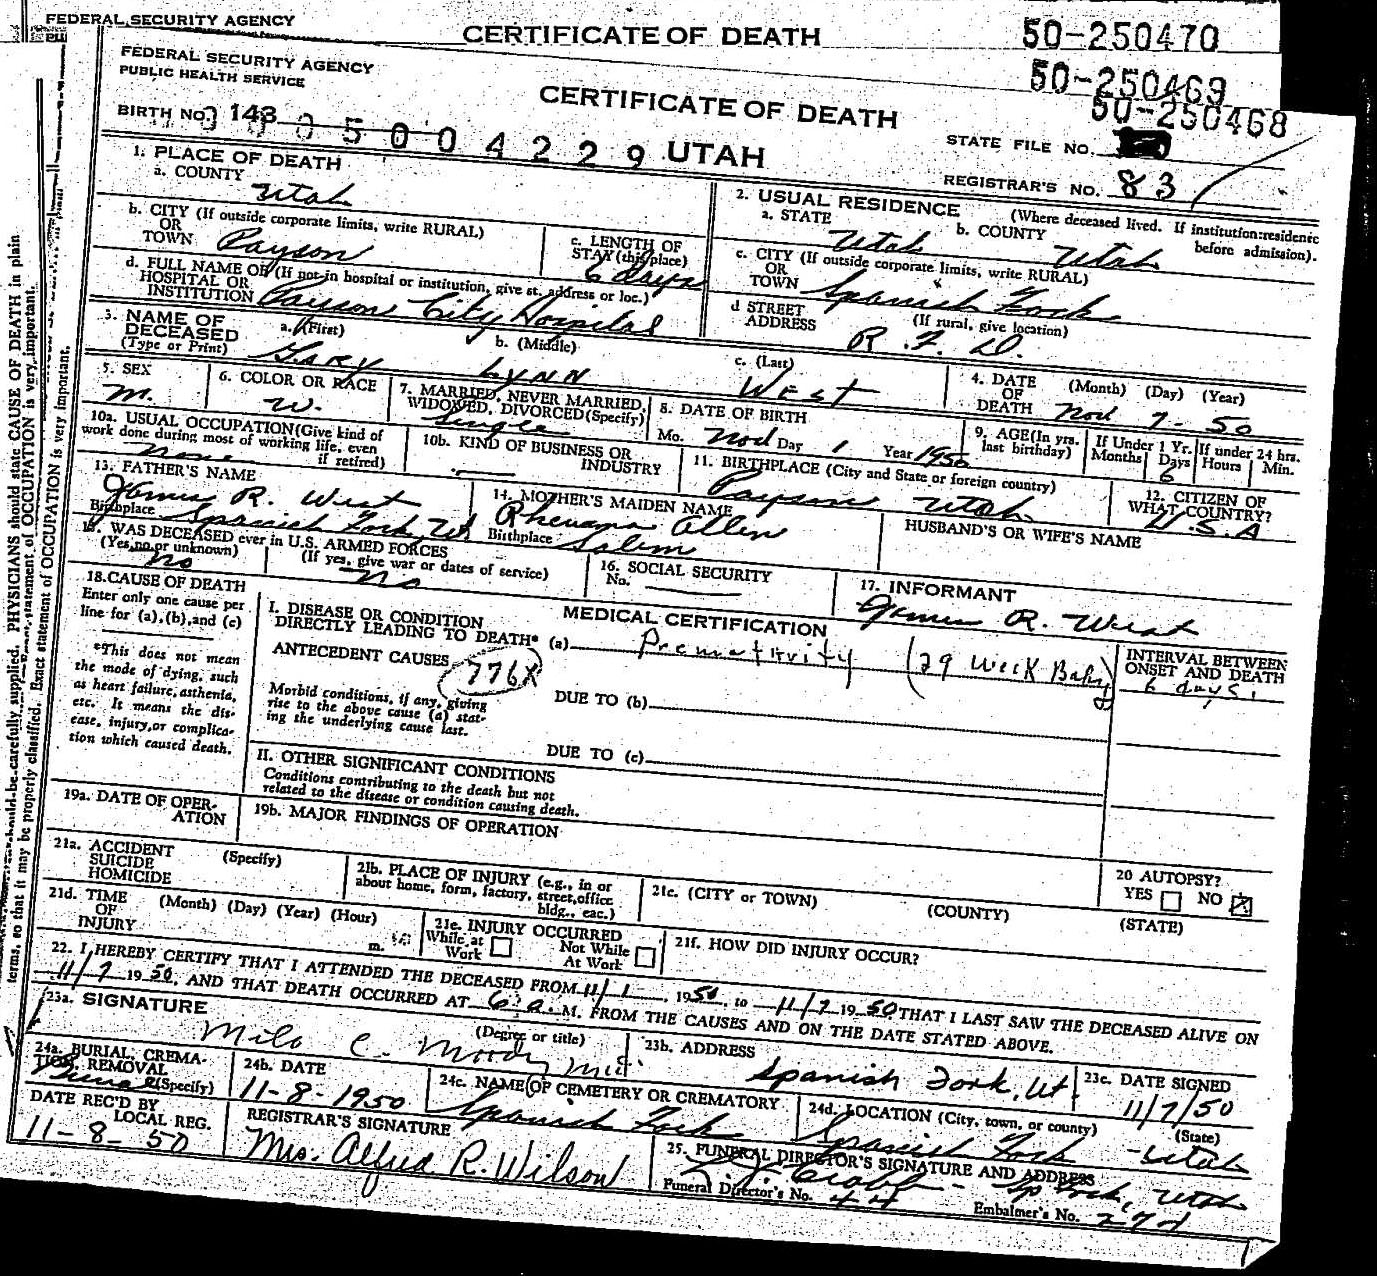 FEDERAL SECURITY AGENCY
CERTIFICATE OF DEATH
50-250470
50-250469
50-250468
FEDERAL SECURITY AGENCY
PUBLIC HEALTH SERVICE
CERTIFICATE OF DEATH
BIRTH NO. 143
500 4229 UTAH
STATE FILE NO.
REGISTRAR'S NO. 83
1. PLACE OF DEATH
a. COUNTY
Utah
2. USUAL RESIDENCE (Where deceased lived. If institution:residence before admission).
a. STATE Utah b. COUNTY Utah
b. CITY (If outside corporate limits, write RURAL)
OR
TOWN Payson
c. LENGTH OF
STAY (this place)
6 days
c. CITY (If outside corporate limits, write RURAL)
OR
TOWN Spanish Fork
d. FULL NAME OF (If not in hospital or institution, give st. address or loc.)
HOSPITAL OR
INSTITUTION Payson City Hospital
d STREET (If rural, give location)
ADDRESS R. F. D.
3. NAME OF
DECEASED
(Type or Print)
a. (First) b. (Middle) c. (Last)
Gary Lynn West
4. DATE (Month) (Day) (Year)
OF
DEATH Nov 7- 50
5. SEX
M.
6. COLOR OR RACE
W.
7. MARRIED, NEVER MARRIED,
WIDOWED, DIVORCED (Specify)
Single
8. DATE OF BIRTH
Mo. Nov Day 1 Year 1950
9. AGE (In yrs.
last birthday)
If Under 1 Yr.
Months Days
6
If under 24 hrs.
Hours Min.
10a. USUAL OCCUPATION (Give kind of
work done during most of working life, even
if retired)
None
10b. KIND OF BUSINESS OR
INDUSTRY
11. BIRTHPLACE (City and State or foreign country)
Payson Utah
12. CITIZEN OF
WHAT COUNTRY?
U.S.A
13. FATHER'S NAME
James R. West
Birthplace Spanish Fork, Ut
14. MOTHER'S MAIDEN NAME
Allen
Birthplace Salem
HUSBAND'S OR WIFE'S NAME
15. WAS DECEASED ever in U.S. ARMED FORCES
(Yes, no or unknown) (If yes, give war or dates of service)
No No
16. SOCIAL SECURITY
No.
17. INFORMANT
James R. West
18. CAUSE OF DEATH
Enter only one cause per
line for (a), (b), and (c)
*This does not mean
the mode of dying, such
as heart failure, asthenia,
etc. It means the dis-
ease, injury, or complica-
tion which caused death.
MEDICAL CERTIFICATION
I. DISEASE OR CONDITION
DIRECTLY LEADING TO DEATH* (a) Prematurity (29 Week Baby)
INTERVAL BETWEEN
ONSET AND DEATH
6 days.
ANTECEDENT CAUSES
776X
Morbid conditions, if any, giving
rise to the above cause (a) stat-
ing the underlying cause last.
DUE TO (b)
DUE TO (c)
II. OTHER SIGNIFICANT CONDITIONS
Conditions contributing to the death but not
related to the disease or condition causing death.
19a. DATE OF OPER-
ATION
19b. MAJOR FINDINGS OF OPERATION
20 AUTOPSY?
YES NO X
21a. ACCIDENT (Specify)
SUICIDE
HOMICIDE
21b. PLACE OF INJURY (e.g., in or
about home, form, factory, street, office
bldg., eac.)
21c. (CITY or TOWN) (COUNTY) (STATE)
21d. TIME (Month) (Day) (Year) (Hour)
OF
INJURY m.
21e. INJURY OCCURRED
While at
Work
Not While
At Work
21f. HOW DID INJURY OCCUR?
22. I HEREBY CERTIFY THAT I ATTENDED THE DECEASED FROM 11/1, 1950, to 11/7 1950 THAT I LAST SAW THE DECEASED ALIVE ON
11/7 1950, AND THAT DEATH OCCURRED AT 6:a. M. FROM THE CAUSES AND ON THE DATE STATED ABOVE.
23a. SIGNATURE (Degree or title)
Milo C. Moody MD.
23b. ADDRESS
Spanish Fork, Ut.
23c. DATE SIGNED
11/7/50
24a. BURIAL, CREMA-
TION, REMOVAL
(Specify)
Burial
24b. DATE
11-8-1950
24c. NAME OF CEMETERY OR CREMATORY
Spanish Fork
24d. LOCATION (City, town, or county) (State)
Spanish Fork - Utah
DATE REC'D BY
LOCAL REG.
11-8-50
REGISTRAR'S SIGNATURE
Mrs. Alfred R. Wilson
25. FUNERAL DIRECTOR'S SIGNATURE AND ADDRESS
Sp Fork, Utah
Funeral Director's No. 44
Embalmer's No.
should be carefully supplied. PHYSICIANS should state CAUSE OF DEATH in plain
terms, so that it may be properly classified. Exact statement of OCCUPATION is very important.